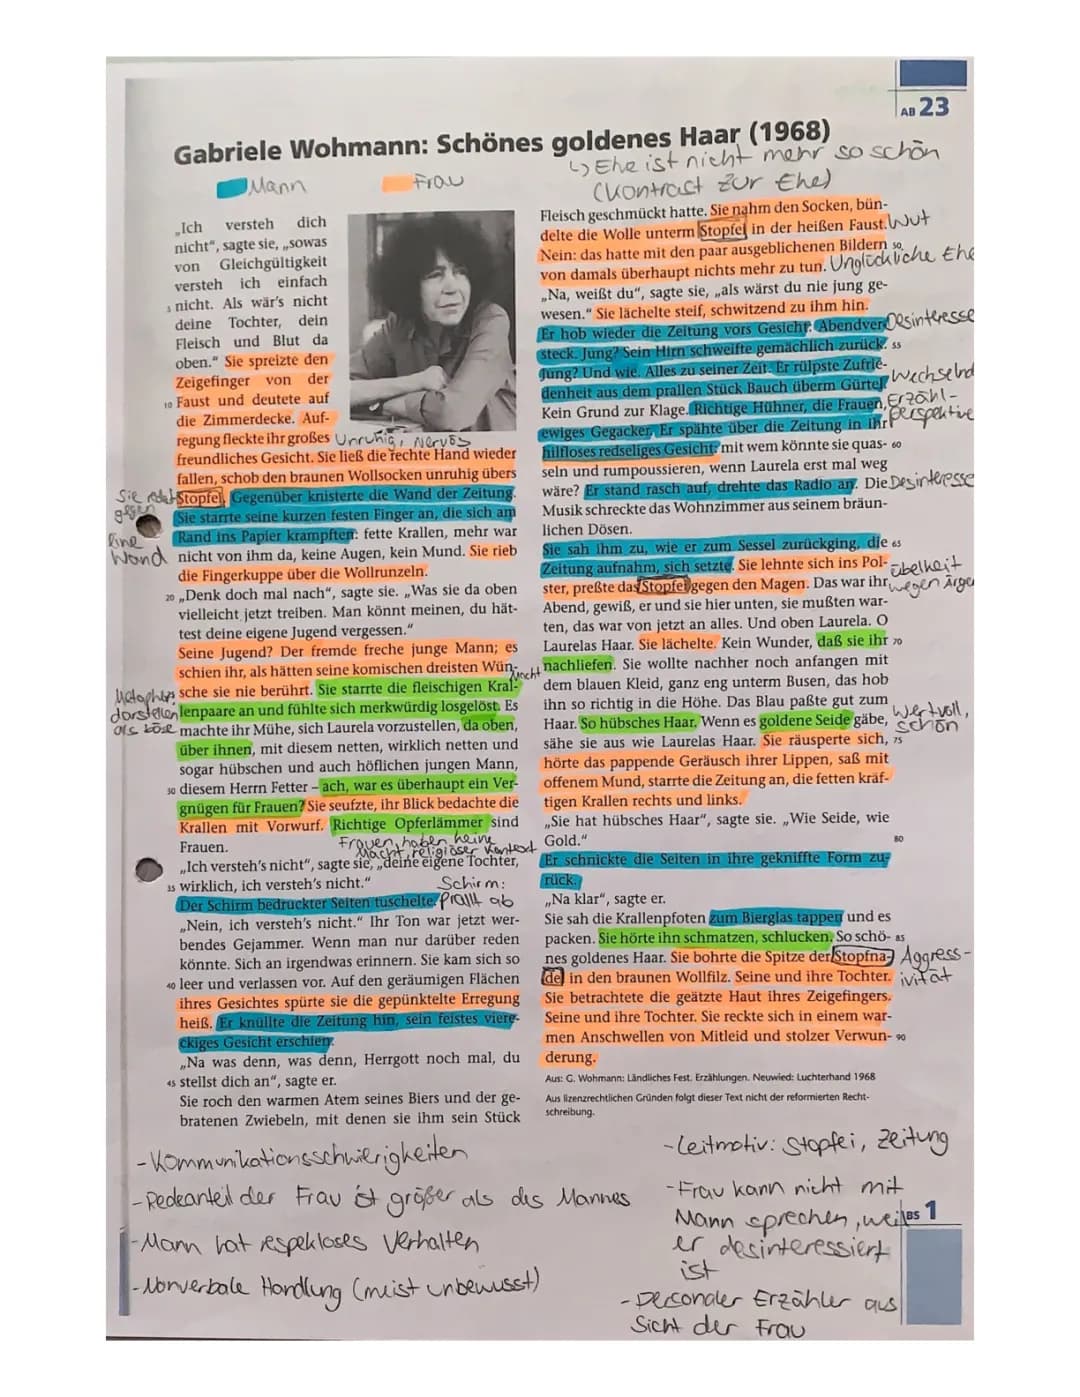 AB 23
Gabriele Wohmann: Schönes goldenes Haar (1968)
↳ Ehe ist nicht mehr so schön
(Kontrast zur Ehe)
Mann
Frau
„Ich versteh dich
nicht“, sagte sie, „sowas
von Gleichgültigkeit
versteh ich einfach
5 nicht. Als wär's nicht
deine Tochter, dein
Fleisch und Blut da
oben.“ Sie spreizte den
Zeigefinger von der
10 Faust und deutete auf
die Zimmerdecke. Auf-
regung fleckte ihr großes
Unruhig, nervös
freundliches Gesicht. Sie ließ die rechte Hand wieder
fallen, schob den braunen Wollsocken unruhig übers
Stopfei. Gegenüber knisterte die Wand der Zeitung.
Sie starrte seine kurzen festen Finger an, die sich am
Rand ins Papier krampften: fette Krallen, mehr war
nicht von ihm da, keine Augen, kein Mund. Sie rieb
die Fingerkuppe über die Wollrunzeln.
Sie redet
gegen
eine
Wand
20 „Denk doch mal nach“, sagte sie. „Was sie da oben
vielleicht jetzt treiben. Man könnt meinen, du hät-
test deine eigene Jugend vergessen.“
Seine Jugend? Der fremde freche junge Mann; es
schien ihr, als hätten seine komischen dreisten Wün-
sche sie nie berührt. Sie starrte die fleischigen Kral-
Macht
lenpaare an und fühlte sich merkwürdig losgelöst. Es
machte ihr Mühe, sich Laurela vorzustellen, da oben,
Metapher
darstellen
als böse
über ihnen, mit diesem netten, wirklich netten und
sogar hübschen und auch höflichen jungen Mann,
30 diesem Herrn Fetter – ach, war es überhaupt ein Ver-
gnügen für Frauen? Sie seufzte, ihr Blick bedachte die
Krallen mit Vorwurf. Richtige Opferlämmer sind
Frauen.
Frauen haben keine
Macht, religiöser Kontext
„Ich versteh's nicht“, sagte sie, „deine eigene Tochter,
35 wirklich, ich versteh's nicht.“
Schirm:
Prallt ab
Der Schirm bedruckter Seiten tuschelte.
„Nein, ich versteh's nicht.“ Ihr Ton war jetzt wer-
bendes Gejammer. Wenn man nur darüber reden
könnte. Sich an irgendwas erinnern. Sie kam sich so
40 leer und verlassen vor. Auf den geräumigen Flächen
ihres Gesichtes spürte sie die gepünktelte Erregung
heiß. Er knüllte die Zeitung hin, sein feistes viere-
ckiges Gesicht erschien.
„Na was denn, was denn, Herrgott noch mal, du
45 stellst dich an“, sagte er.
Sie roch den warmen Atem seines Biers und der ge-
bratenen Zwiebeln, mit denen sie ihm sein Stück
Fleisch geschmückt hatte. Sie nahm den Socken, bün-
delte die Wolle unterm Stopfei in der heißen Faust.
Wut
Nein: das hatte mit den paar ausgeblichenen Bildern 50
von damals überhaupt nichts mehr zu tun.
Unglückliche Ehe
„Na, weißt du“, sagte sie, „als wärst du nie jung ge-
wesen.“ Sie lächelte steif, schwitzend zu ihm hin.
Er hob wieder die Zeitung vors Gesicht: Abendver-
Desinteresse
steck. Jung? Sein Hirn schweifte gemächlich zurück. 55
Jung? Und wie. Alles zu seiner Zeit. Er rülpste Zufrie-
denheit aus dem prallen Stück Bauch überm Gürtel.
Kein Grund zur Klage. Richtige Hühner, die Frauen,
ewiges Gegacker. Er spähte über die Zeitung in ihr
Wechselnd
Erzähl-
perspektive
hilfloses redseliges Gesicht: mit wem könnte sie quas- 60
seln und rumpoussieren, wenn Laurela erst mal weg
wäre? Er stand rasch auf, drehte das Radio an. Die
Desinteresse
Musik schreckte das Wohnzimmer aus seinem bräun-
lichen Dösen.
Sie sah ihm zu, wie er zum Sessel zurückging, die 65
Zeitung aufnahm, sich setzte. Sie lehnte sich ins Pol-
ster, preßte das Stopfei gegen den Magen. Das war ihr
Übelkeit
wegen Ärger
Abend, gewiß, er und sie hier unten, sie mußten war-
ten, das war von jetzt an alles. Und oben Laurela. O
Laurelas Haar. Sie lächelte. Kein Wunder, daß sie ihr 70
nachliefen. Sie wollte nachher noch anfangen mit
dem blauen Kleid, ganz eng unterm Busen, das hob
ihn so richtig in die Höhe. Das Blau paßte gut zum
Haar. So hübsches Haar. Wenn es goldene Seide gäbe,
Wertvoll,
schön
sähe sie aus wie Laurelas Haar. Sie räusperte sich, 75
hörte das pappende Geräusch ihrer Lippen, saß mit
offenem Mund, starrte die Zeitung an, die fetten kräf-
tigen Krallen rechts und links.
„Sie hat hübsches Haar“, sagte sie. „Wie Seide, wie
Gold.“ 80
Er schnickte die Seiten in ihre gekniffte Form zu-
rück.
„Na klar“, sagte er.
Sie sah die Krallenpfoten zum Bierglas tappen und es
packen. Sie hörte ihn schmatzen, schlucken. So schö- 85
nes goldenes Haar. Sie bohrte die Spitze der Stopfna-
Aggress-
ivität
del in den braunen Wollfilz. Seine und ihre Tochter.
Sie betrachtete die geätzte Haut ihres Zeigefingers.
Seine und ihre Tochter. Sie reckte sich in einem war-
men Anschwellen von Mitleid und stolzer Verwun- 90
derung.
Aus: G. Wohmann: Ländliches Fest. Erzählungen. Neuwied: Luchterhand 1968
Aus lizenzrechtlichen Gründen folgt dieser Text nicht der reformierten Recht-
schreibung.
- Kommunikationsschwierigkeiten
- Redeanteil der Frau ist größer als des Mannes
- Mann hat respekloses Verhalten
- Nonverbale Handlung (meist unbewusst)
- Leitmotiv: Stopfei, Zeitung
- Frau kann nicht mit
Mann sprechen, weil
er desinteressiert
ist
- Personaler Erzähler aus
Sicht der Frau
ABS 1